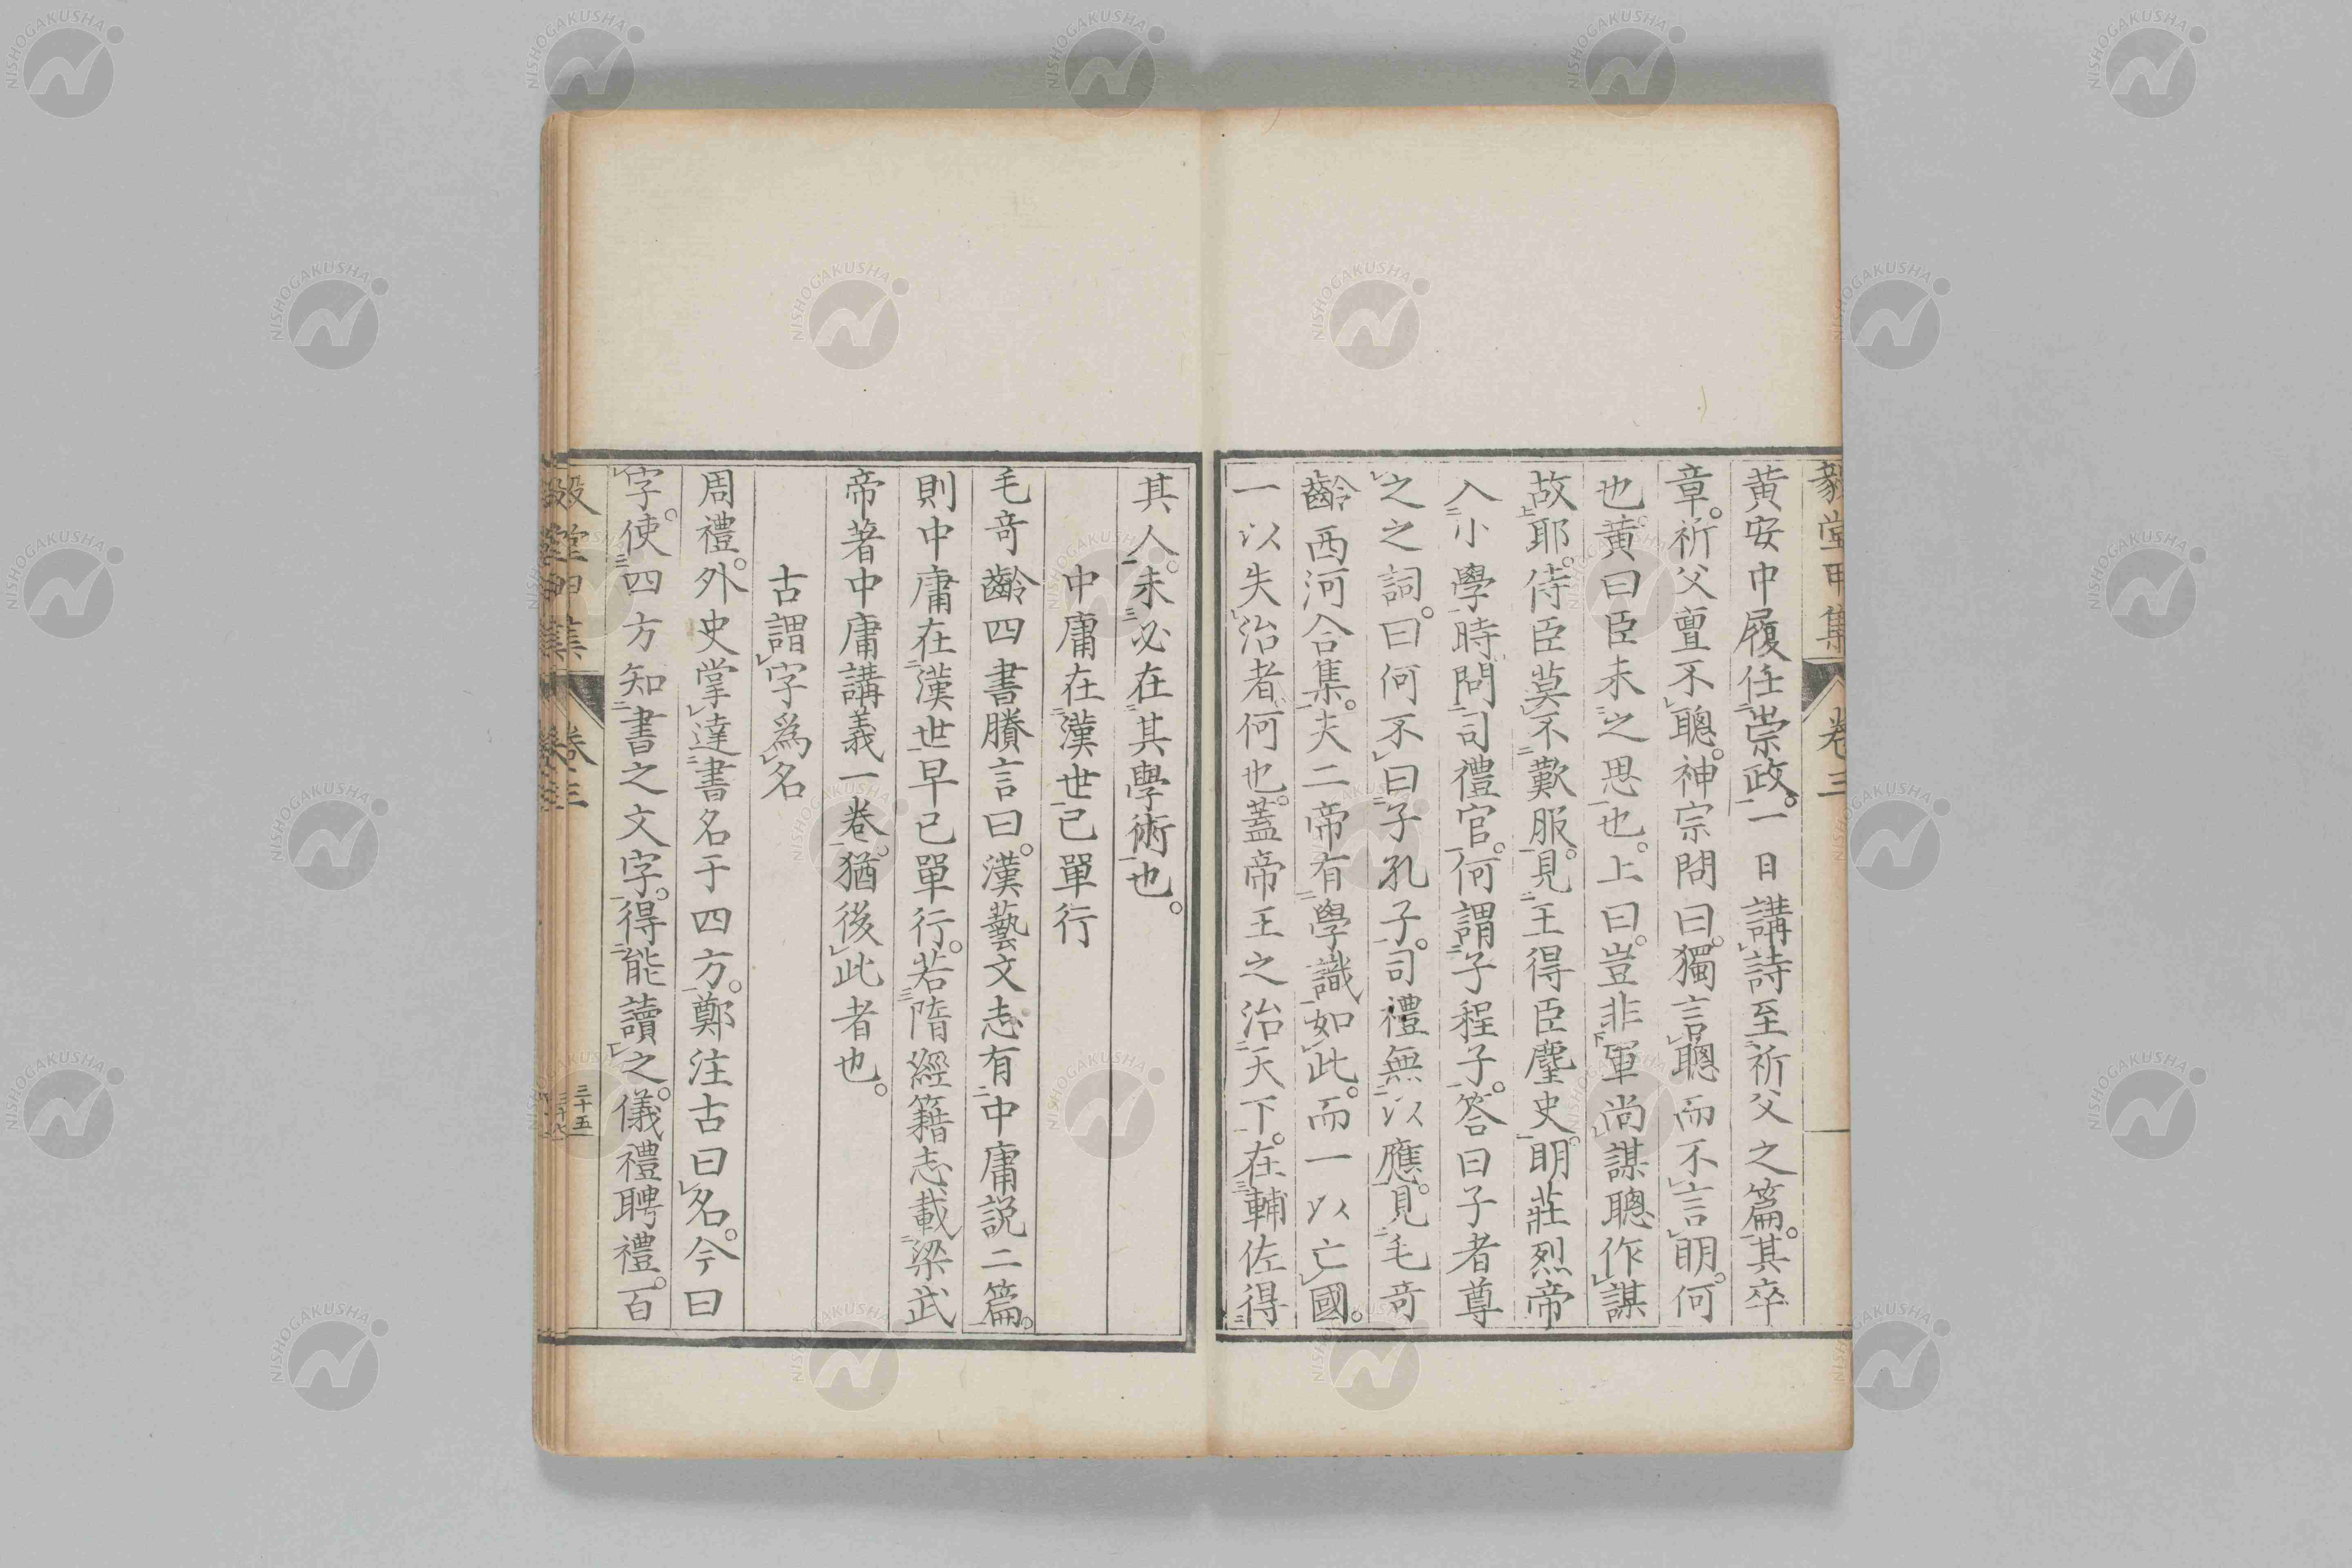 毅堂甲集 卷三
黃安中履任崇政。一日講詩至祈父之篇。其卒
章。祈父亶不聰。神宗問曰。獨言聰而不言明。何
也。黃曰臣未之思也。上曰。豈非軍尚謀聰作謀
故耶。侍臣莫不歎服。見王得臣麈史。明莊烈帝
入小學時。問司禮官。何謂子程子。答曰子者尊
之之詞。曰何不曰子孔子。司禮無以應。見毛奇
齡西河合集。夫二帝有學識如此。而一以亡國。
一以失治者何也。蓋帝王之治天下。在輔佐得
其人。未必在其學術也。
中庸在漢世已單行
毛奇齡四書賸言曰。漢藝文志有中庸說二篇。
則中庸在漢世早已單行。若隋經籍志載梁武
帝著中庸講義一卷。猶後此者也。
古謂字爲名
周禮。外史掌達書名于四方。鄭注古曰名。今曰
字。使四方知書之文字。得能讀之。儀禮聘禮。百
毅堂甲集 卷三 三十五
NISHOGAKUSHA